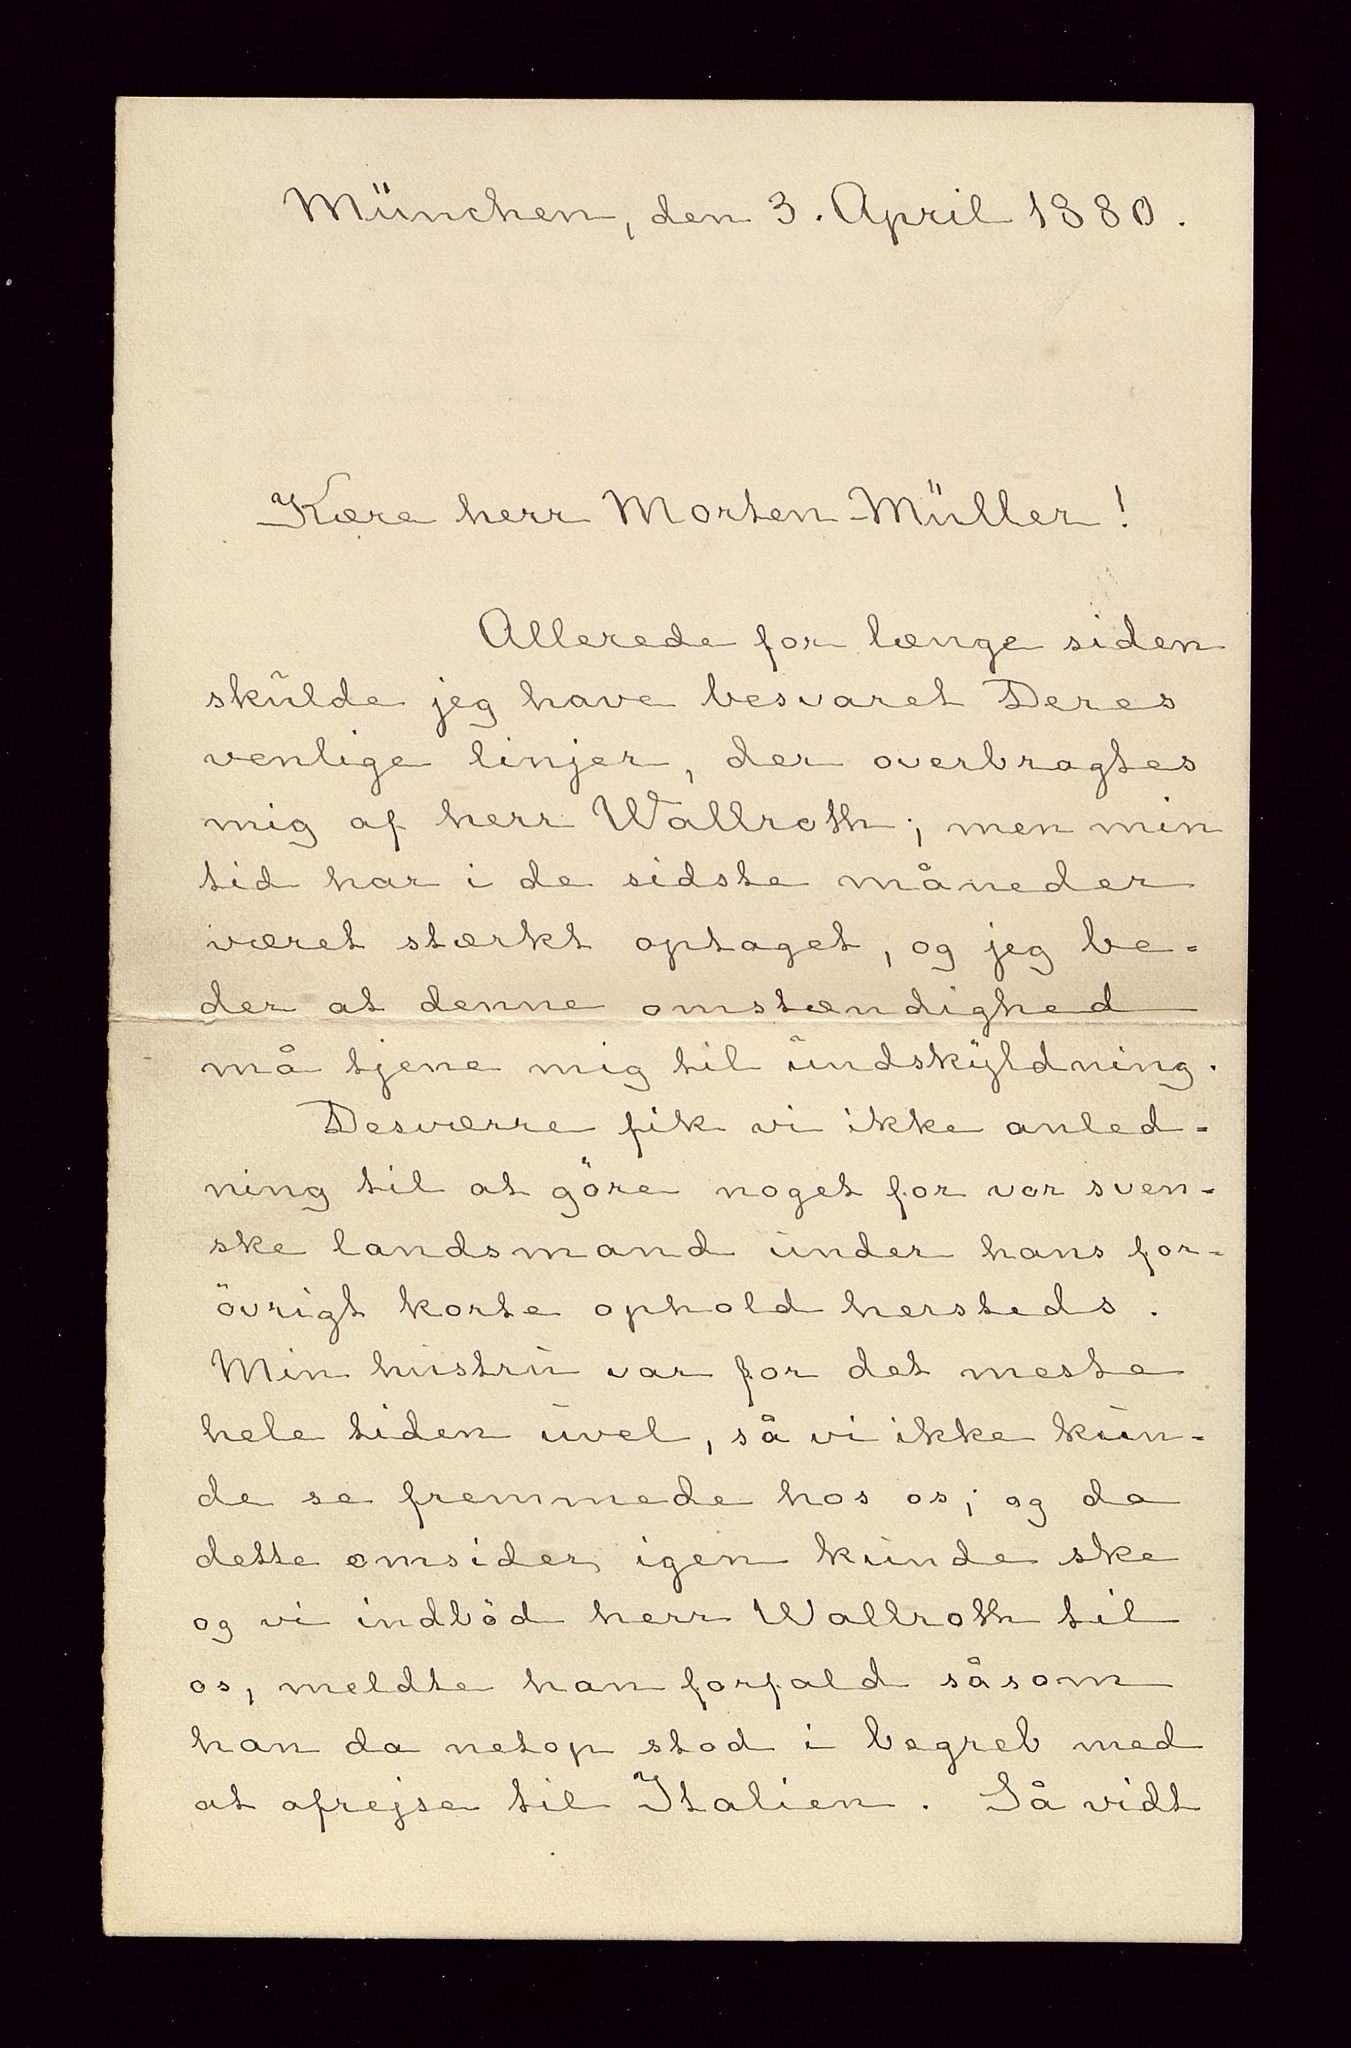 München, den 3. April 1880.
Kære herr Morten-Müller!
Allerede for længe siden
skulde jeg have besvaret Deres
venlige linjer, der overbragtes
mig af herr Wallroth; men min
tid har i de sidste måneder
været stærkt optaget, og jeg be-
der at denne omstændighed
må tjene mig til undskyldning.
Desværre fik vi ikke anled-
ning til at göre noget for vor sven-
ske landsmand under hans for-
övrigt korte ophold hersteds.
Min hustru var for det meste
hele tiden uvel, så vi ikke kun-
de se fremmede hos os; og da
dette omsider igen kunde ske
og vi indböd herr Wallroth til
os, meldte han forfald såsom
han da netop stod i begreb med
at afrejse til Italien. Så vidt